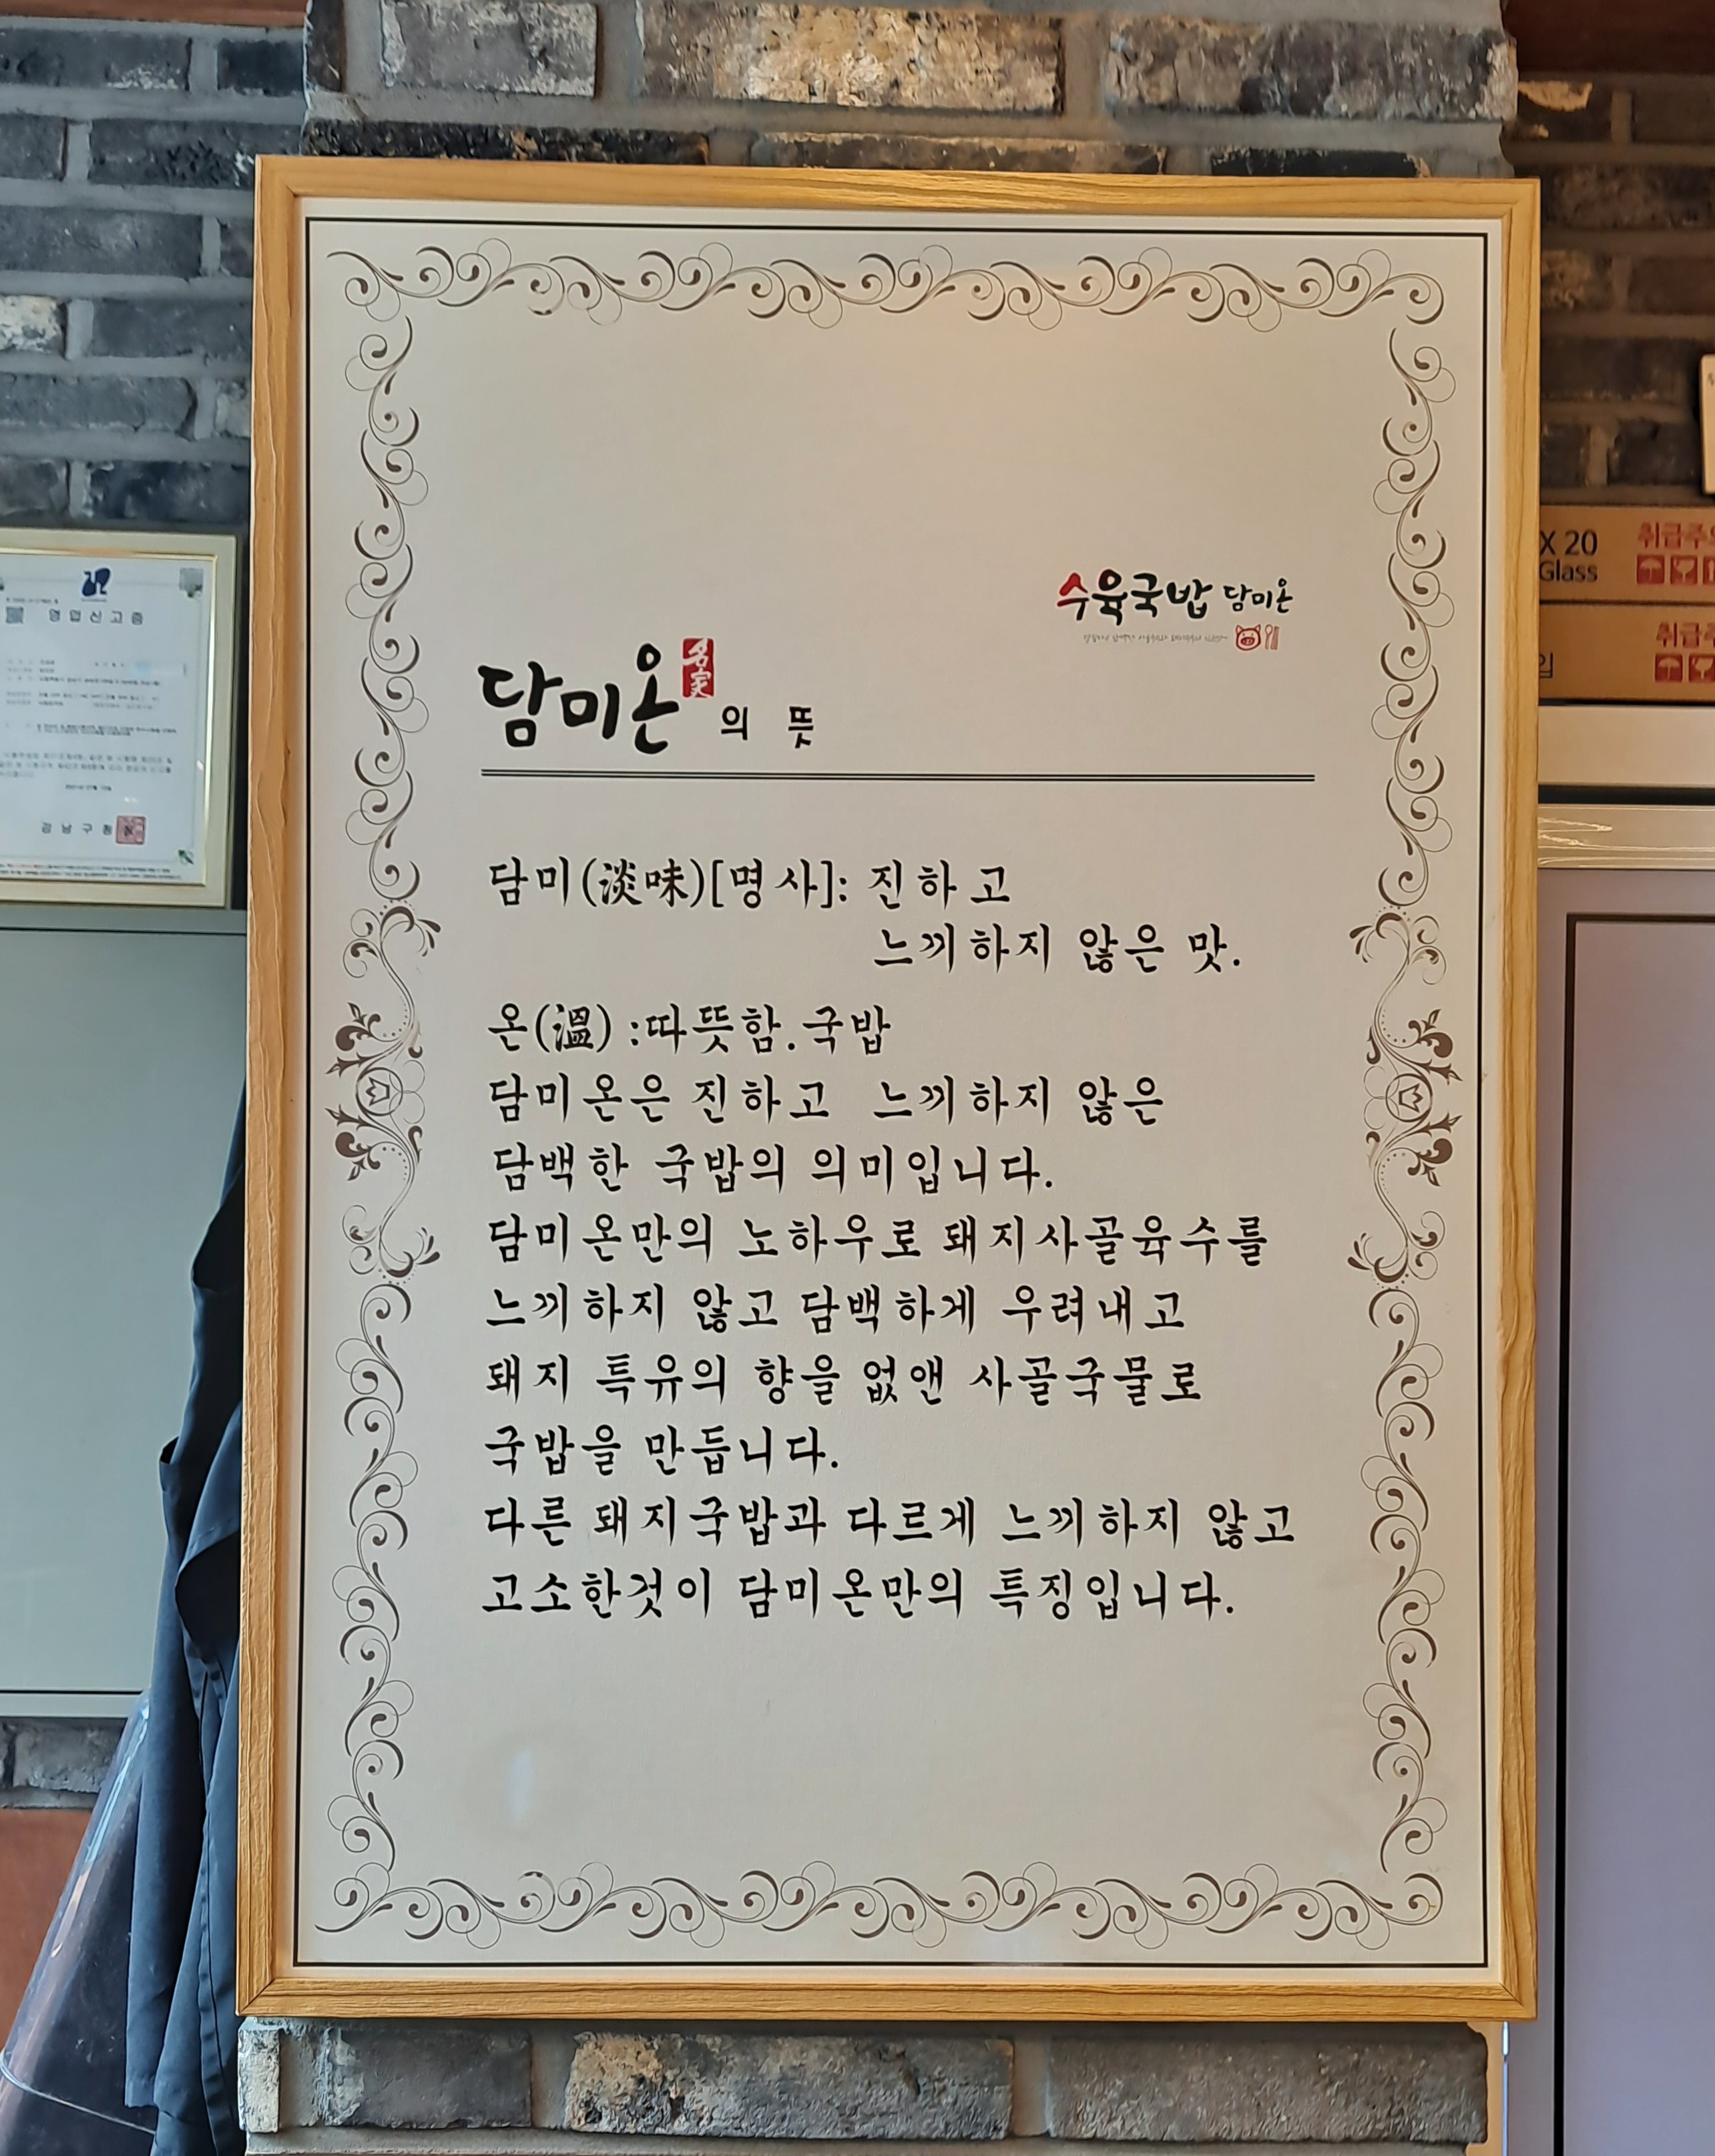 수육국밥 담미온
담미온 名家 의 뜻
담미(淡味)[명사]: 진하고
느끼하지 않은 맛.
온(溫) :따뜻함.국밥
담미온은 진하고 느끼하지 않은
담백한 국밥의 의미입니다.
담미온만의 노하우로 돼지사골육수를
느끼하지 않고 담백하게 우려내고
돼지 특유의 향을 없앤 사골국물로
국밥을 만듭니다.
다른 돼지국밥과 다르게 느끼하지 않고
고소한것이 담미온만의 특징입니다.
영업신고증
강남구청
X 20
Glass
취급주
입
취급주